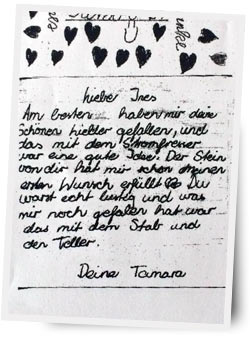 Lieber Ines
Am besten haben mir deine
schönen Lielder gefallen, und
das mit dem Stromfresser
war eine gute Idee. Der Stein
von dir hat mir schon meinen
ersten Wunsch erfüllt Du
warst echt lustig und was
mir noch gefallen hat war
das mit dem Stab und
den Teller.
Deine Tamara